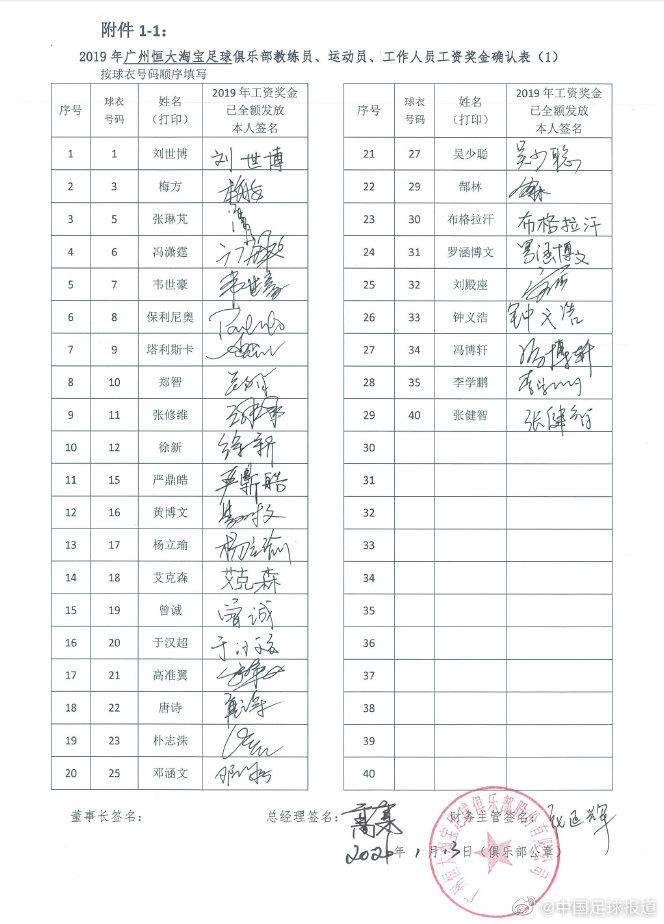 附件 1-1：
2019 年广州恒大淘宝足球俱乐部教练员、运动员、工作人员工资奖金确认表（1）
按球衣号码顺序填写
序号 球衣号码 姓名（打印） 2019 年工资奖金已全额发放本人签名
1 1 刘世博 刘世博
2 3 梅方 梅方
3 5 张琳芃
4 6 冯潇霆
5 7 韦世豪 韦世豪
6 8 保利尼奥
7 9 塔利斯卡
8 10 郑智
9 11 张修维
10 12 徐新 徐新
11 15 严鼎皓 严鼎皓
12 16 黄博文
13 17 杨立瑜 杨立瑜
14 18 艾克森 艾克森
15 19 曾诚 曾诚
16 20 于汉超 于汉超
17 21 高准翼
18 22 唐诗
19 23 朴志洙
20 25 邓涵文
序号 球衣号码 姓名（打印） 2019 年工资奖金已全额发放本人签名
21 27 吴少聪 吴少聪
22 29 郜林
23 30 布格拉汗 布格拉汗
24 31 罗涵博文 罗涵博文
25 32 刘殿座
26 33 钟义浩 钟义浩
27 34 冯博轩 冯博轩
28 35 李学鹏
29 40 张健智 张健智
30
31
32
33
34
35
36
37
38
39
40
董事长签名： 总经理签名： 财务主管签名：
2020 年 1 月 13 日（俱乐部公章）
广州恒大淘宝足球俱乐部股份有限公司
@中国足球报道